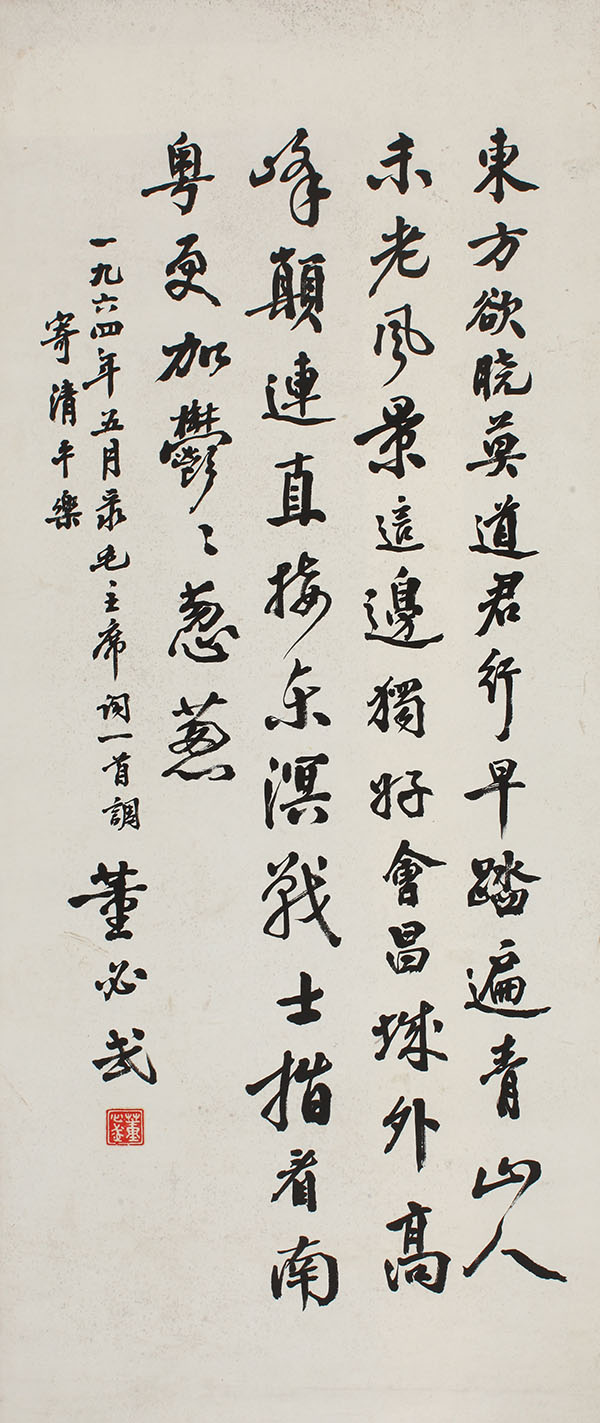 東方欲晓莫道君行早踏遍青山人
未老風景這邊獨好會昌城外高
峰顛連直接东溟戰士指看南
粤更加鬱〻葱葱
一九六四年五月录毛主席词一首調
寄清平樂
董必武
董必武